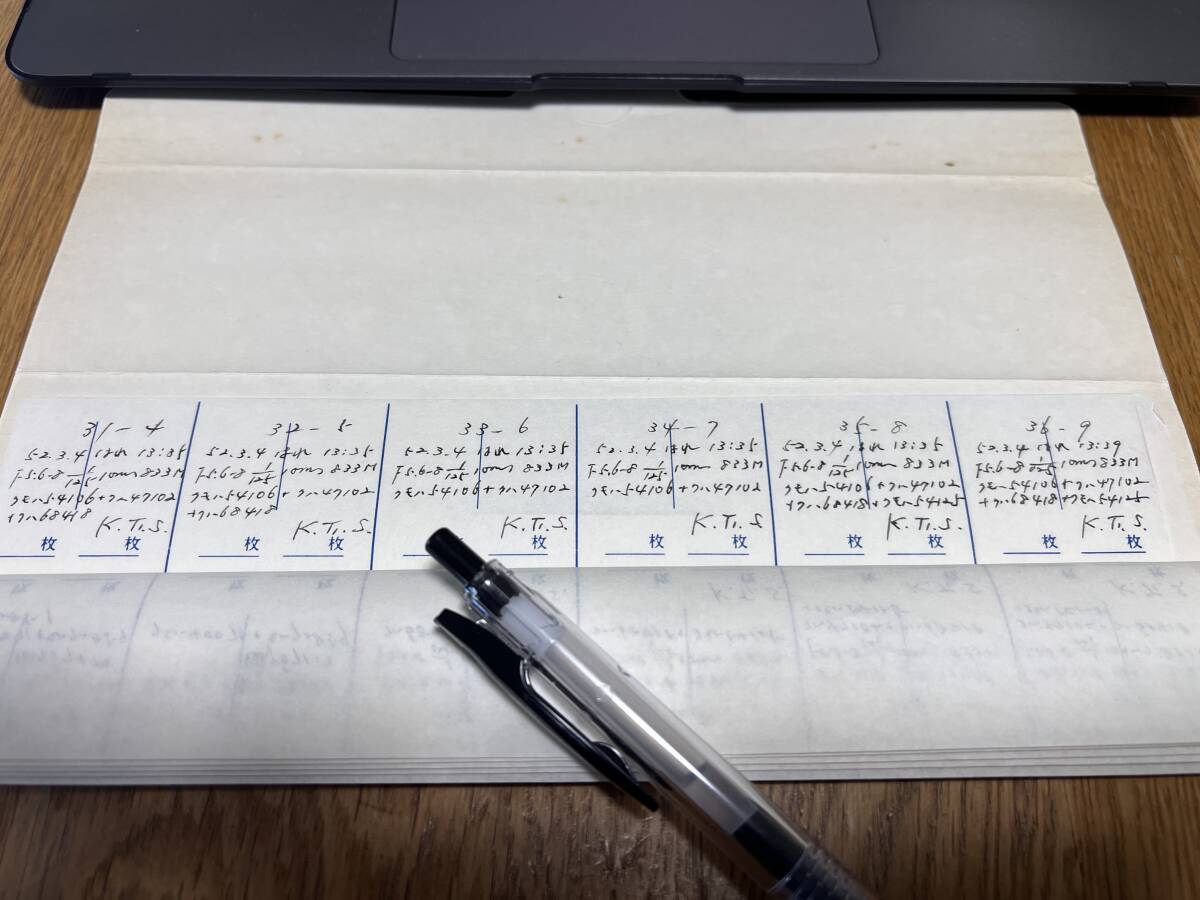 31-4
52.3.4 はれ 13:35
F5.6-8 1/125 100mm 833M
クモハ54106+クハ47102
+クハ68418
K.Ti.S.
枚 枚
32-5
52.3.4 はれ 13:35
F5.6-8 1/125 100mm 833M
クモハ54106+クハ47102
+クハ68418
K.Ti.S.
枚 枚
33-6
52.3.4 はれ 13:35
F5.6-8 1/125 100mm 833M
クモハ54106+クハ47102
K.Ti.S.
枚 枚
34-7
52.3.4 はれ 13:35
F5.6-8 1/125 100mm 833M
クモハ54106+クハ47102
K.Ti.S.
枚 枚
35-8
52.3.4 はれ 13:35
F5.6-8 1/125 100mm 833M
クモハ54106+クハ47102
+クハ68418+クモハ54125
K.Ti.S.
枚 枚
36-9
52.3.4 はれ 13:39
F5.6-8 1/125 100mm 833M
クモハ54106+クハ47102
+クハ68418+クモハ54125
K.Ti.S.
枚 枚